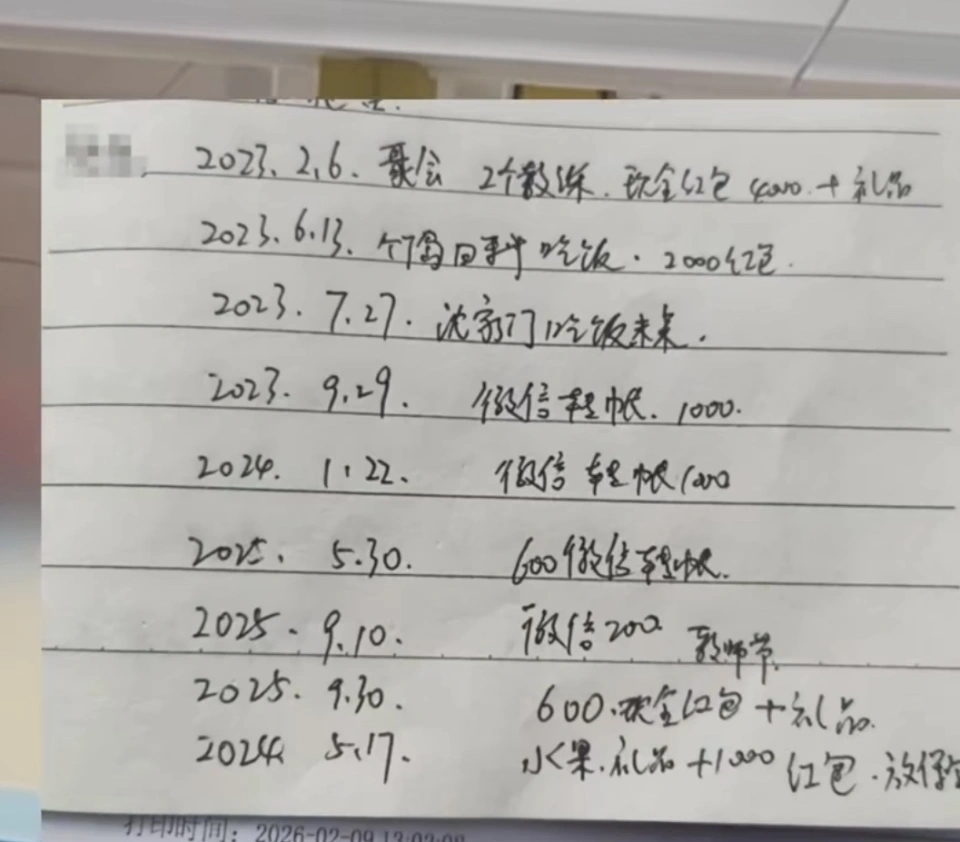 2023.2.6. 聚会 2个教练.现金红包 4000.+礼品
2023.6.13. 吃饭.2000红包.
2023.7.27.沈家门吃饭未来.
2023.9.29. 微信转帐.1000.
2024.1.22. 微信转帐1000
2025.5.30. 600微信转帐.
2025.9.10. 微信200 教师节.
2025.9.30. 600.现金红包+礼品.
2024.5.17. 水果.礼品+1000红包.放保
打印时间：2026-02-09 13:02:08